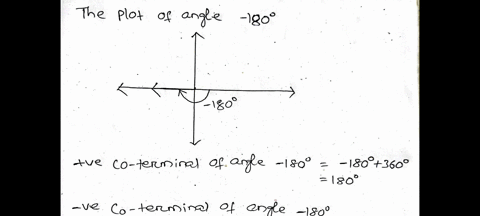 The plot of angle -180°
-180°
+ve co-terminal of angle -180° = -180°+360°
= 180°
-ve Co-terminal of angle -180°